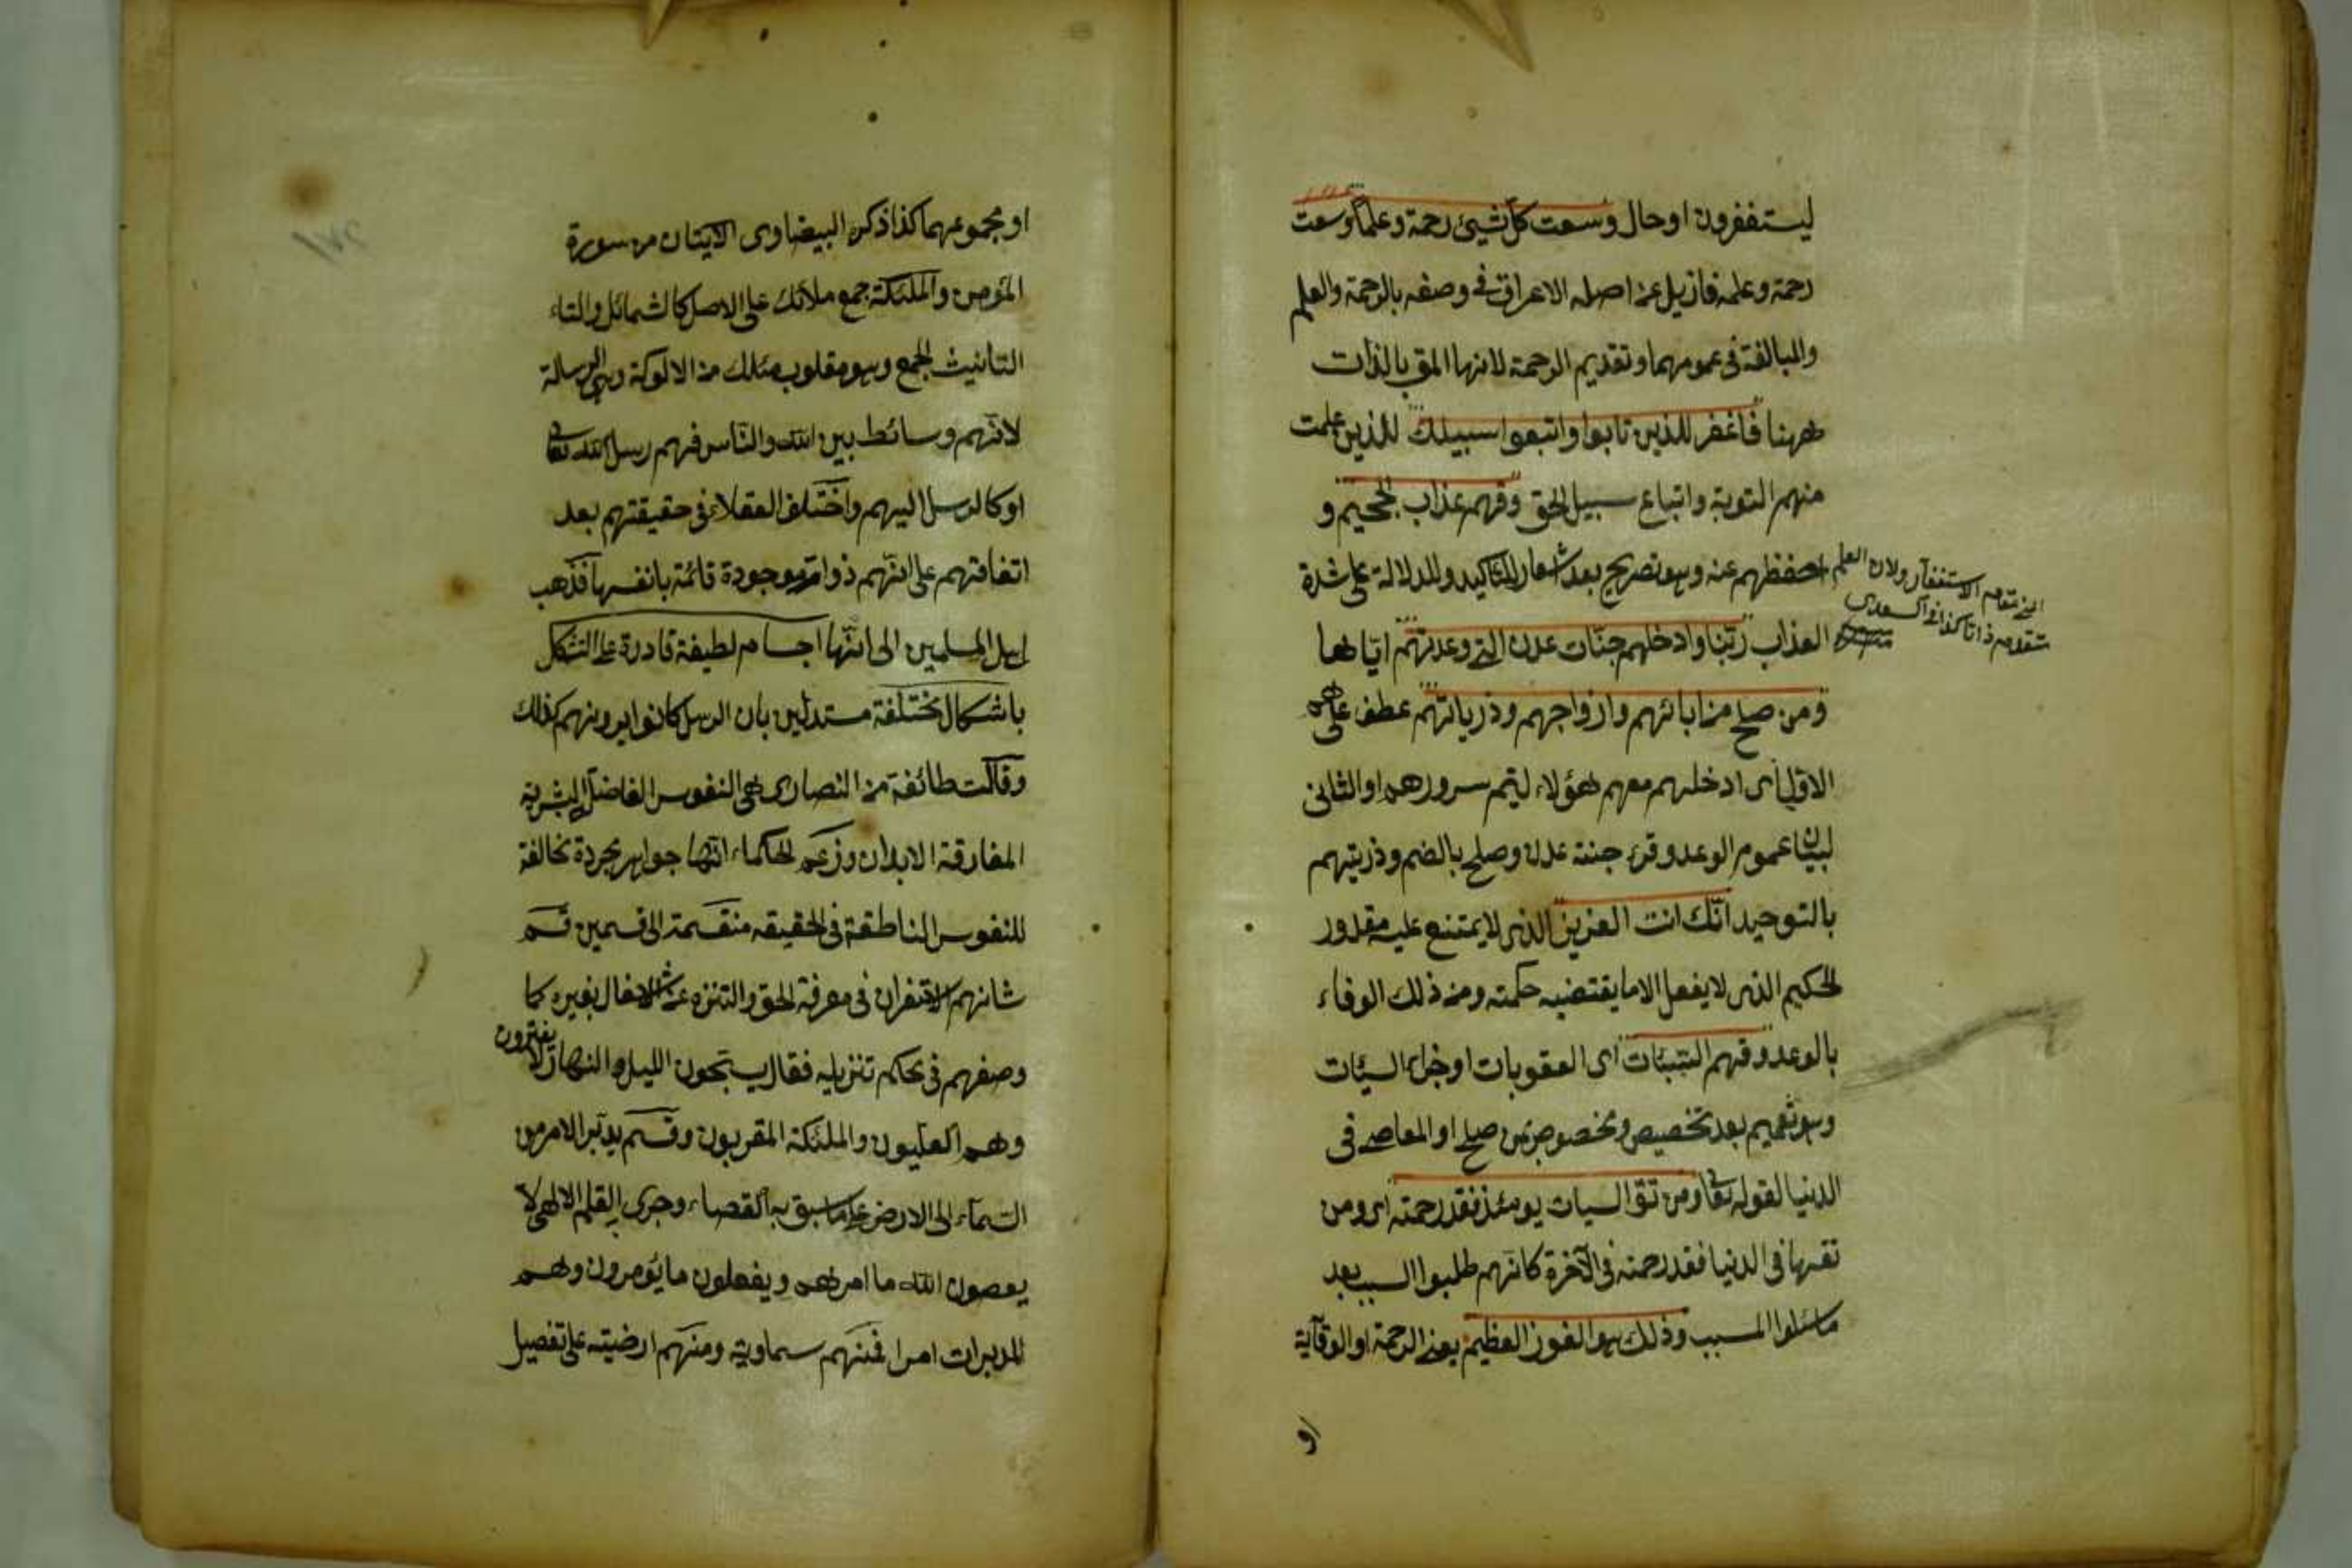 ليستغفرون او حال وسعت كل شيئ رحمة وعلما وسعت
رحمة وعلمه فازيل عن اصله الاعراق في وصفه بالرحمة والعلم
والمبالغة في عمومهما وتقديم الرحمة لانها المقص بالذات
ههنا فاغفر للذين تابوا واتبعوا سبيلك للذين علمت
منهم التوبة واتباع سبيل الحق وقهم عذاب الجحيم و
احفظهم عنه وهو تصريح بعد اشعار للتاكيد وللدلالة على شدة
العذاب ربنا وادخلهم جنات عدن التي وعدتهم اياها
ومن صلح من ابائهم وازواجهم وذرياتهم عطف على هم
الاول اى ادخلهم معهم هؤلاء ليتم سرورهم او الثانى
لبيان عموم الوعد وقرئ جنة عدن وصلح بالضم وذريتهم
بالتوحيد انك انت العزيز الذى لا يمتنع عليه مقدور
الحكيم الذى لا يفعل الا ما يقتضيه حكمته ومن ذلك الوفاء
بالوعد وقهم السيئات اى العقوبات او جزاء السيئات
وهو تعميم بعد تخصيص ومخصوص بمن صلح او المعاصى فى
الدنيا لقوله تعا ومن تق السيات يومئذ فقد رحمته اى ومن
تقها فى الدنيا فقد رحمته فى الآخرة كانهم طلبوا السبب بعد
ما سئلوا المسبب وذلك هو الفوز العظيم يعنى الرحمة او الوقاية
او
ولان العلم
الاستغفار
يتقدم ذاتا كذا فى السعدى
او مجموعهما كذا ذكره البيضاوى الايتان من سورة
المؤمن والملئكة جمع ملائك على الاصل كالشمائل والتاء
التانيث الجمع وهو مقلوب مئلك من الالوكة وهى الرسالة
لانهم وسائط بين الله والناس فهم رسل الله تعا
او كالرسل اليهم واختلف العقلاء فى حقيقتهم بعد
اتفاقهم على انهم ذوات موجودة قائمة بانفسها فذهب
اهل المسلمين الى انها اجسام لطيفة قادرة على التشكل
باشكال مختلفة مستدلين بان الرسل كانوا يرونهم كذلك
وقالت طائفة من النصارى هى النفوس الفاضلة البشرية
المفارقة الابدان وزعم الحكماء انها جواهر مجردة مخالفة
للنفوس الناطقة فى الحقيقه منقسمة الى قسمين قسم
شانهم الاستغراق فى معرفة الحق والتنزه عن الاشتغال بغيره كما
وصفهم فى محكم تنزيله فقال يسبحون الليل والنهار لا يفترون
وهم العليون والملئكة المقربون وقسم يدبر الامر من
السماء الى الارض على ما سبق به القضاء وجرى القلم الالهى لا
يعصون الله ما امرهم ويفعلون ما يؤمرون وهم
المدبرات امرا فمنهم سماوية ومنهم ارضيته على تفصيل